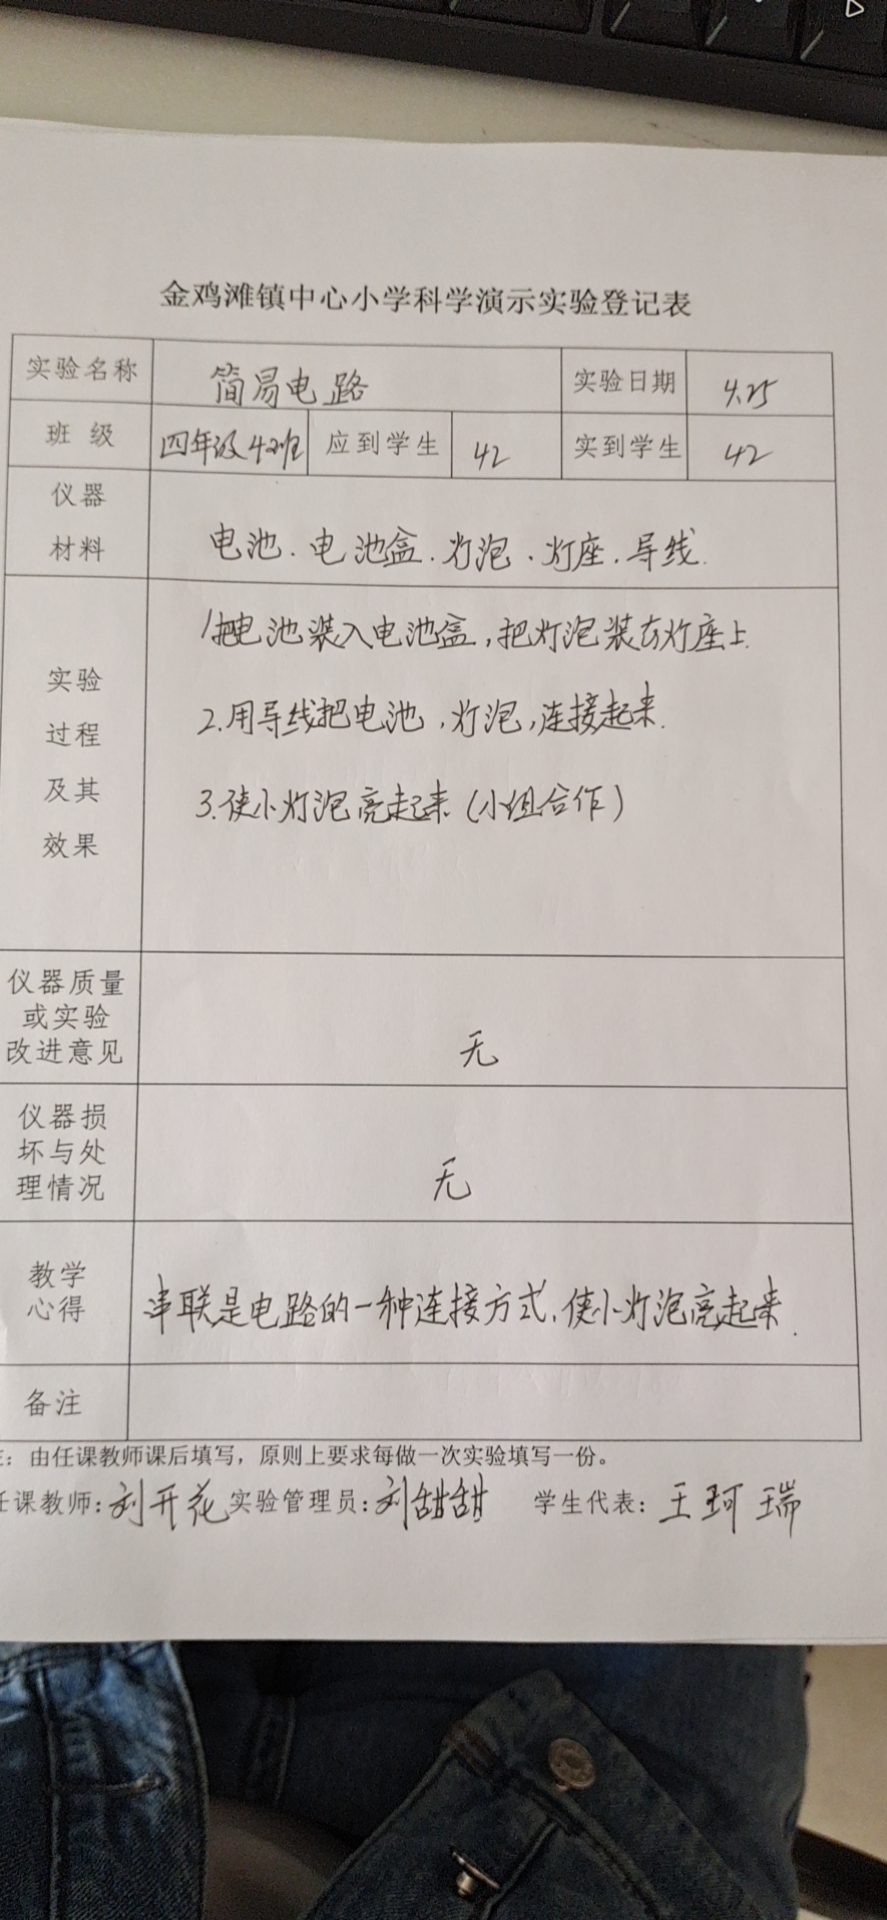 金鸡滩镇中心小学科学演示实验登记表
实验名称 简易电路 实验日期 4.25
班 级 四年级4.2班 应到学生 42 实到学生 42
仪器
材料
电池.电池盒.灯泡.灯座.导线.
实验
过程
及其
效果
1把电池装入电池盒,把灯泡装在灯座上.
2.用导线把电池,灯泡,连接起来.
3.使小灯泡亮起来(小组合作)
仪器质量
或实验
改进意见
无
仪器损
坏与处
理情况
无
教学
心得
串联是电路的一种连接方式,使小灯泡亮起来.
备注
注：由任课教师课后填写，原则上要求每做一次实验填写一份。
任课教师:刘开花 实验管理员:刘甜甜 学生代表:王珂瑞